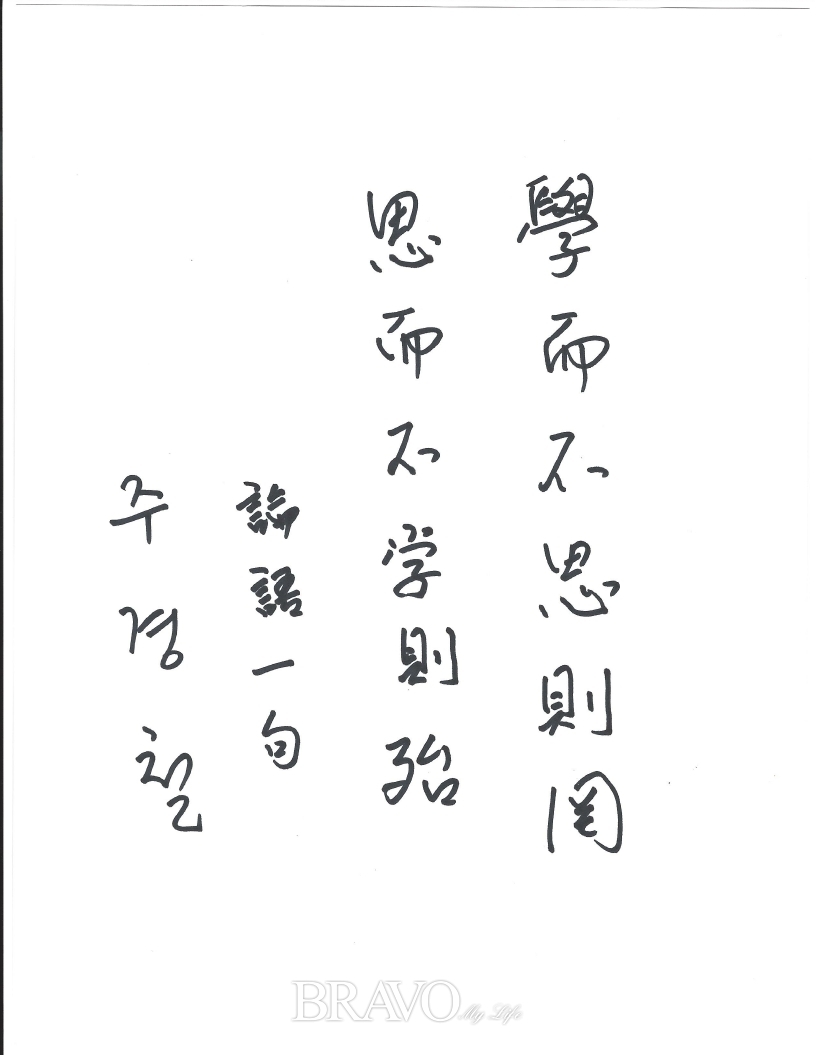 學而不思則罔
思而不学則殆
論語一句
주경철
BRAVO My Life